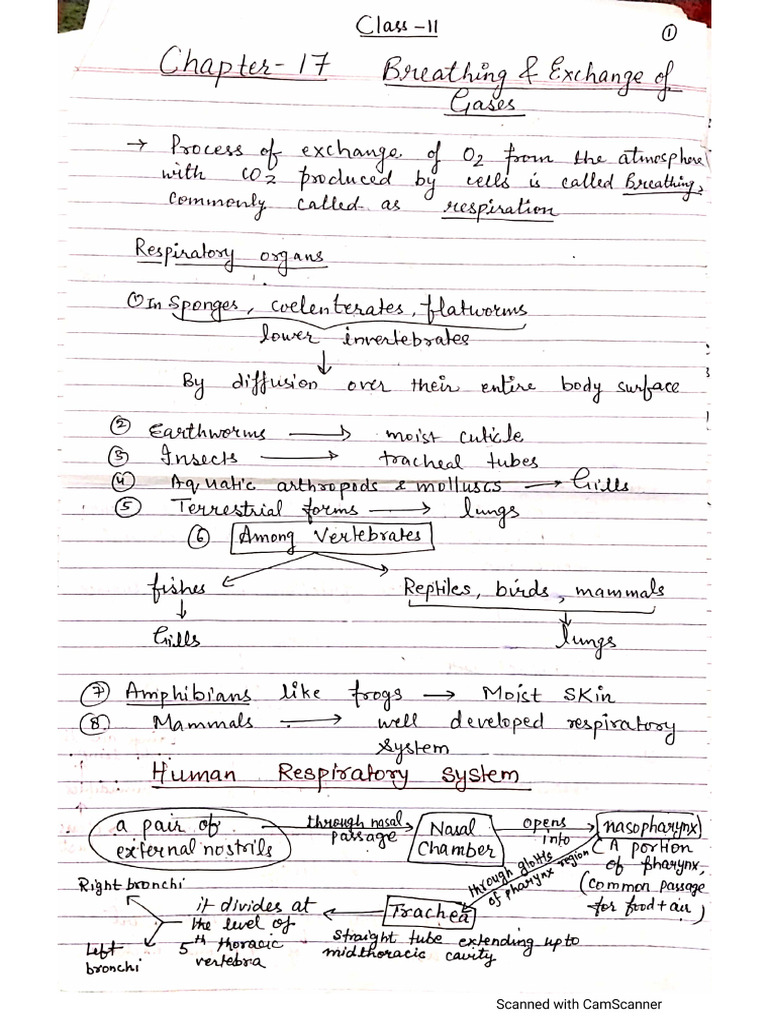 Class-11
①
Chapter-17 Breathing & Exchange of
Gases
→ Process of exchange of O2 from the atmosphere
with CO2 produced by cells is called Breathing,
commonly called as respiration
Respiratory organs
① In Sponges, coelenterates, flatworms
lower invertebrates
↓
By diffusion over their entire body surface
② Earthworms → moist cuticle
③ Insects → tracheal tubes
④ Aquatic arthropods & molluscs → Gills
⑤ Terrestrial forms → lungs
⑥ Among Vertebrates
fishes Reptiles, birds, mammals
↓ ↓
Gills lungs
⑦ Amphibians like frogs → Moist Skin
⑧ Mammals → well developed respiratory
system
Human Respiratory System
a pair of external nostrils
through nasal passage
Nasal Chamber
opens into
nasopharynx
(A portion
of pharynx,
(common passage
for food + air)
through glottis
of pharynx region
Trachea
straight tube extending upto
midthoracic cavity
it divides at
the level of
5th thoracic
vertebra
Right bronchi
Left
bronchi
Scanned with CamScanner